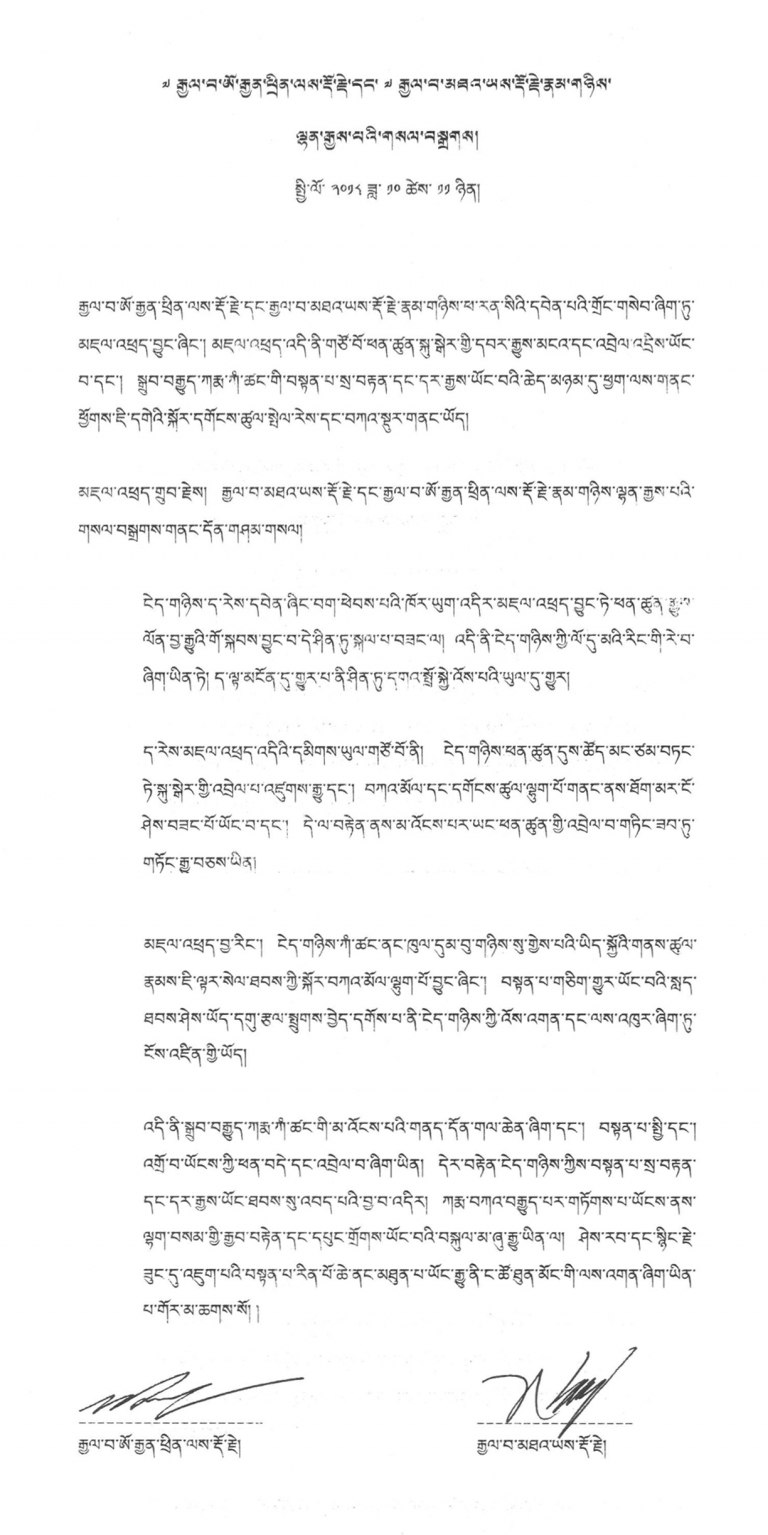 ༧ རྒྱལ་བ་ཨོ་རྒྱན་ཕྲིན་ལས་རྡོ་རྗེ་དང་ ༧ རྒྱལ་བ་མཐའ་ཡས་རྡོ་རྗེ་རྣམ་གཉིས་
ལྷན་རྒྱས་པའི་གསལ་བསྒྲགས།
སྤྱི་ལོ་ ༢༠༡༨ ཟླ་ ༡༠ ཚེས་ ༡༡ ཉིན།
རྒྱལ་བ་ཨོ་རྒྱན་ཕྲིན་ལས་རྡོ་རྗེ་དང་རྒྱལ་བ་མཐའ་ཡས་རྡོ་རྗེ་རྣམ་གཉིས་ཕ་རན་སིའི་དབེན་པའི་གྲོང་གསེབ་ཞིག་ཏུ་
མཇལ་འཕྲད་བྱུང་ཞིང་། མཇལ་འཕྲད་འདི་ནི་གཙོ་བོ་ཕན་ཚུན་སྐུ་སྒེར་གྱི་དབར་རྒྱུས་མངའ་དང་འབྲེལ་འདྲིས་ཡོང་
བ་དང་། སྒྲུབ་བརྒྱུད་ཀརྨ་ཀཾ་ཚང་གི་བསྟན་པ་སྲ་བརྟན་དང་དར་རྒྱས་ཡོང་བའི་ཆེད་མཉམ་དུ་ཕྱག་ལས་གནང་
ཕྱོགས་ཇི་དགེའི་སྐོར་དགོངས་ཚུལ་སྤེལ་རེས་དང་བཀའ་སྡུར་གནང་ཡོད།
མཇལ་འཕྲད་གྲུབ་རྗེས། རྒྱལ་བ་མཐའ་ཡས་རྡོ་རྗེ་དང་རྒྱལ་བ་ཨོ་རྒྱན་ཕྲིན་ལས་རྡོ་རྗེ་རྣམ་གཉིས་ལྷན་རྒྱས་པའི་
གསལ་བསྒྲགས་གནང་དོན་གཤམ་གསལ།
ངེད་གཉིས་ད་རེས་དབེན་ཞིང་བག་ཕེབས་པའི་ཁོར་ཡུག་འདིར་མཇལ་འཕྲད་བྱུང་ཏེ་ཕན་ཚུན་རྒྱུས་
ལོན་བྱ་རྒྱུའི་གོ་སྐབས་བྱུང་བ་དེ་ཤིན་ཏུ་སྐལ་པ་བཟང་ལ། འདི་ནི་ངེད་གཉིས་ཀྱི་ལོ་དུ་མའི་རིང་གི་རེ་བ་
ཞིག་ཡིན་ཏེ། ད་ལྟ་མངོན་དུ་གྱུར་པ་ནི་ཤིན་ཏུ་དགའ་སྤྲོ་སྐྱེ་འོས་པའི་ཡུལ་དུ་གྱུར།
ད་རེས་མཇལ་འཕྲད་འདིའི་དམིགས་ཡུལ་གཙོ་བོ་ནི། ངེད་གཉིས་ཕན་ཚུན་དུས་ཚོད་མང་ཙམ་བཏང་
ཏེ་སྐུ་སྒེར་གྱི་འབྲེལ་པ་འཛུགས་རྒྱུ་དང་། བཀའ་མོལ་དང་དགོངས་ཚུལ་ལྷུག་པོ་གནང་ནས་ཐོག་མར་ངོ་
ཤེས་བཟང་པོ་ཡོང་བ་དང་། དེ་ལ་བརྟེན་ནས་མ་འོངས་པར་ཡང་ཕན་ཚུན་གྱི་འབྲེལ་བ་གཏིང་ཟབ་ཏུ་
གཏོང་རྒྱུ་བཅས་ཡིན།
མཇལ་འཕྲད་བྱ་རིང་། ངེད་གཉིས་ཀཾ་ཚང་ནང་ཁུལ་དུམ་བུ་གཉིས་སུ་གྱེས་པའི་ཡིད་སྐྱོའི་གནས་ཚུལ་
རྣམས་ཇི་ལྟར་སེལ་ཐབས་ཀྱི་སྐོར་བཀའ་མོལ་ལྷུག་པོ་བྱུང་ཞིང་། བསྟན་པ་གཅིག་གྱུར་ཡོང་བའི་སླད་
ཐབས་ཤེས་ཡོད་དགུ་རྩལ་སྤྲུགས་བྱེད་དགོས་པ་ནི་ངེད་གཉིས་ཀྱི་འོས་འགན་དང་ལས་འཁུར་ཞིག་ཏུ་
ངོས་འཛིན་གྱི་ཡོད།
འདི་ནི་སྒྲུབ་བརྒྱུད་ཀརྨ་ཀཾ་ཚང་གི་མ་འོངས་པའི་གནད་དོན་གལ་ཆེན་ཞིག་དང་། བསྟན་པ་སྤྱི་དང་།
འགྲོ་བ་ཡོངས་ཀྱི་ཕན་བདེ་དང་འབྲེལ་བ་ཞིག་ཡིན། དེར་བརྟེན་ངེད་གཉིས་ཀྱིས་བསྟན་པ་སྲ་བརྟན་
དང་དར་རྒྱས་ཡོང་ཐབས་སུ་འབད་པའི་བྱ་བ་འདིར། ཀརྨ་བཀའ་བརྒྱུད་པར་གཏོགས་པ་ཡོངས་ནས་
ལྷག་བསམ་གྱི་རྒྱབ་བརྟེན་དང་དཔུང་གྲོགས་ཡོང་བའི་བསྐུལ་མ་ཞུ་རྒྱུ་ཡིན་ལ། ཤེས་རབ་དང་སྙིང་རྗེ་
ཟུང་དུ་འཇུག་པའི་བསྟན་པ་རིན་པོ་ཆེ་ནང་མཐུན་པ་ཡོང་རྒྱུ་ནི་ང་ཚོ་ཐུན་མོང་གི་ལས་འགན་ཞིག་ཡིན་
པ་གོར་མ་ཆགས་སོ། །
རྒྱལ་བ་ཨོ་རྒྱན་ཕྲིན་ལས་རྡོ་རྗེ། རྒྱལ་བ་མཐའ་ཡས་རྡོ་རྗེ།